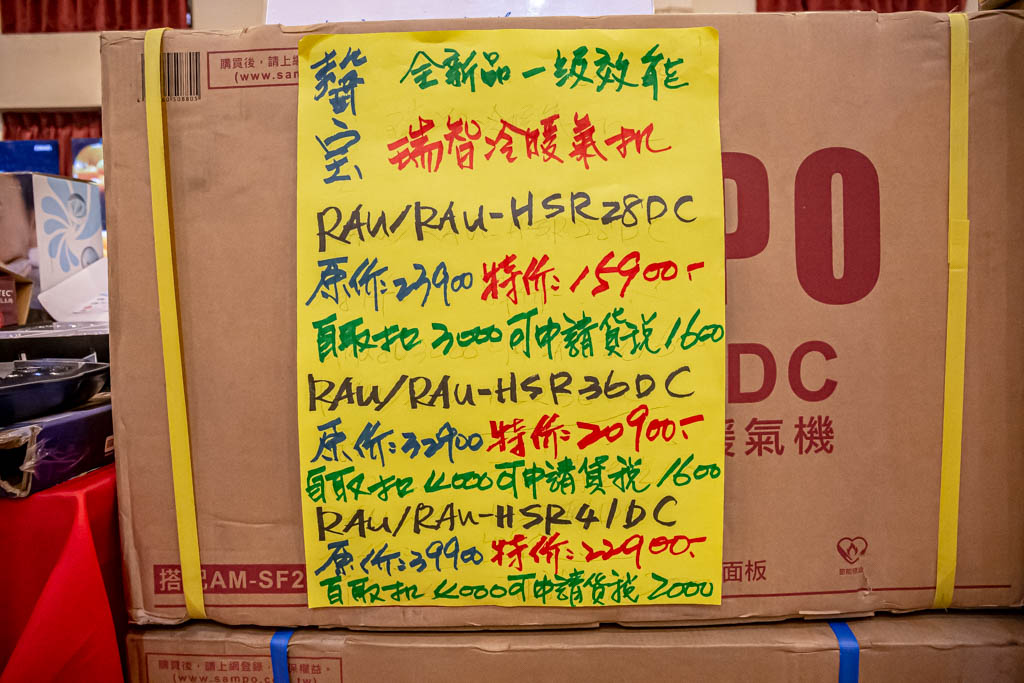 購買後,請上網
(www.sampo
60508805
聲宝
全新品一級效能
瑞智冷暖氣机
RAU/RAU-HSR28DC
原价:23900 特价:15900.-
自取扣3000可申請貨税1600
RAU/RAU-HSR36DC
原价:32900 特价:20900.-
自取扣4000可申請貨税1600
RAU/RAU-HSR41DC
原价:39900 特价:22900.-
自取扣4000可申請貨税2000
PO
DC
暖氣機
搭配AM-SF2
面板
購買後,請上網登錄,保權益。
(www.sampo.co